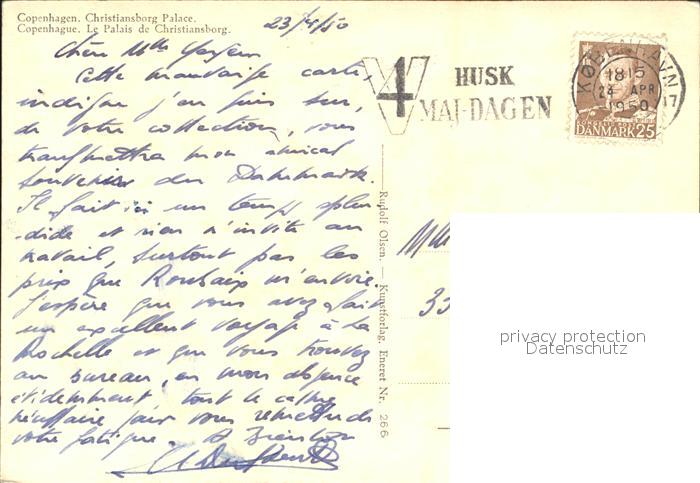 Copenhagen. Christiansborg Palace.
Copenhague. Le Palais de Christiansborg.
23/4/50
Chère Mlle
Cette mauvaise carte,
indigne j'en suis sur,
de votre collection, vous
transmettra mon amical
souvenir du Danemark.
Il fait ici un temps splen-
dide et rien n'invite au
travail, surtout pas les
prix que Roubaix m'envoie.
J'espère que vous avez fait
un excellent voyage à La
Rochelle et que vous trouvez
au bureau, en mon absence
évidemment, tout le calme
nécessaire pour vous remettre de
votre fatigue. A bientôt
Rudolf Olsen. — Kunstforlag. Eneret Nr. 266
V4
HUSK
MAJ-DAGEN
KØBENHAVN 17
18 15
24 APR
1950
DANMARK 25
Mlle
33
privacy protection
Datenschutz